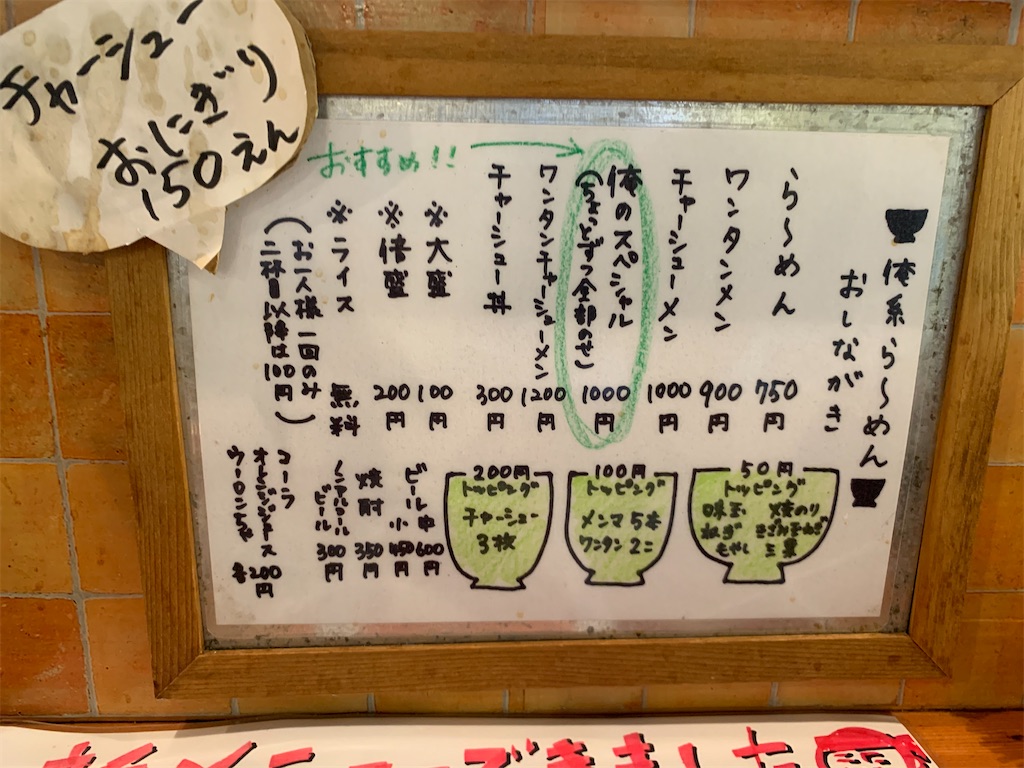 チャーシュー
おにぎり
150えん
俺系ら〜めん
おしながき
ら〜めん 750円
ワンタンメン 900円
チャーシューメン 1000円
おすすめ!!
俺のスペシャル
(ちょっとずつ全部のせ) 1000円
ワンタンチャーシューメン 1200円
チャーシュー丼 300円
※大盛 100円
※倍盛 200円
※ライス 無料
(お一人様一回のみ
二杯目以降は100円)
50円
トッピング
味玉 焼のり
ねぎ きざみ玉ねぎ
もやし 三つ葉
100円
トッピング
メンマ5本
ワンタン2コ
200円
トッピング
チャーシュー
3枚
ビール 中 600円
小 450円
焼酎 350円
ノンアルコール
ビール 300円
コーラ
オレンジジュース
ウーロン茶 各200円
メニューできました